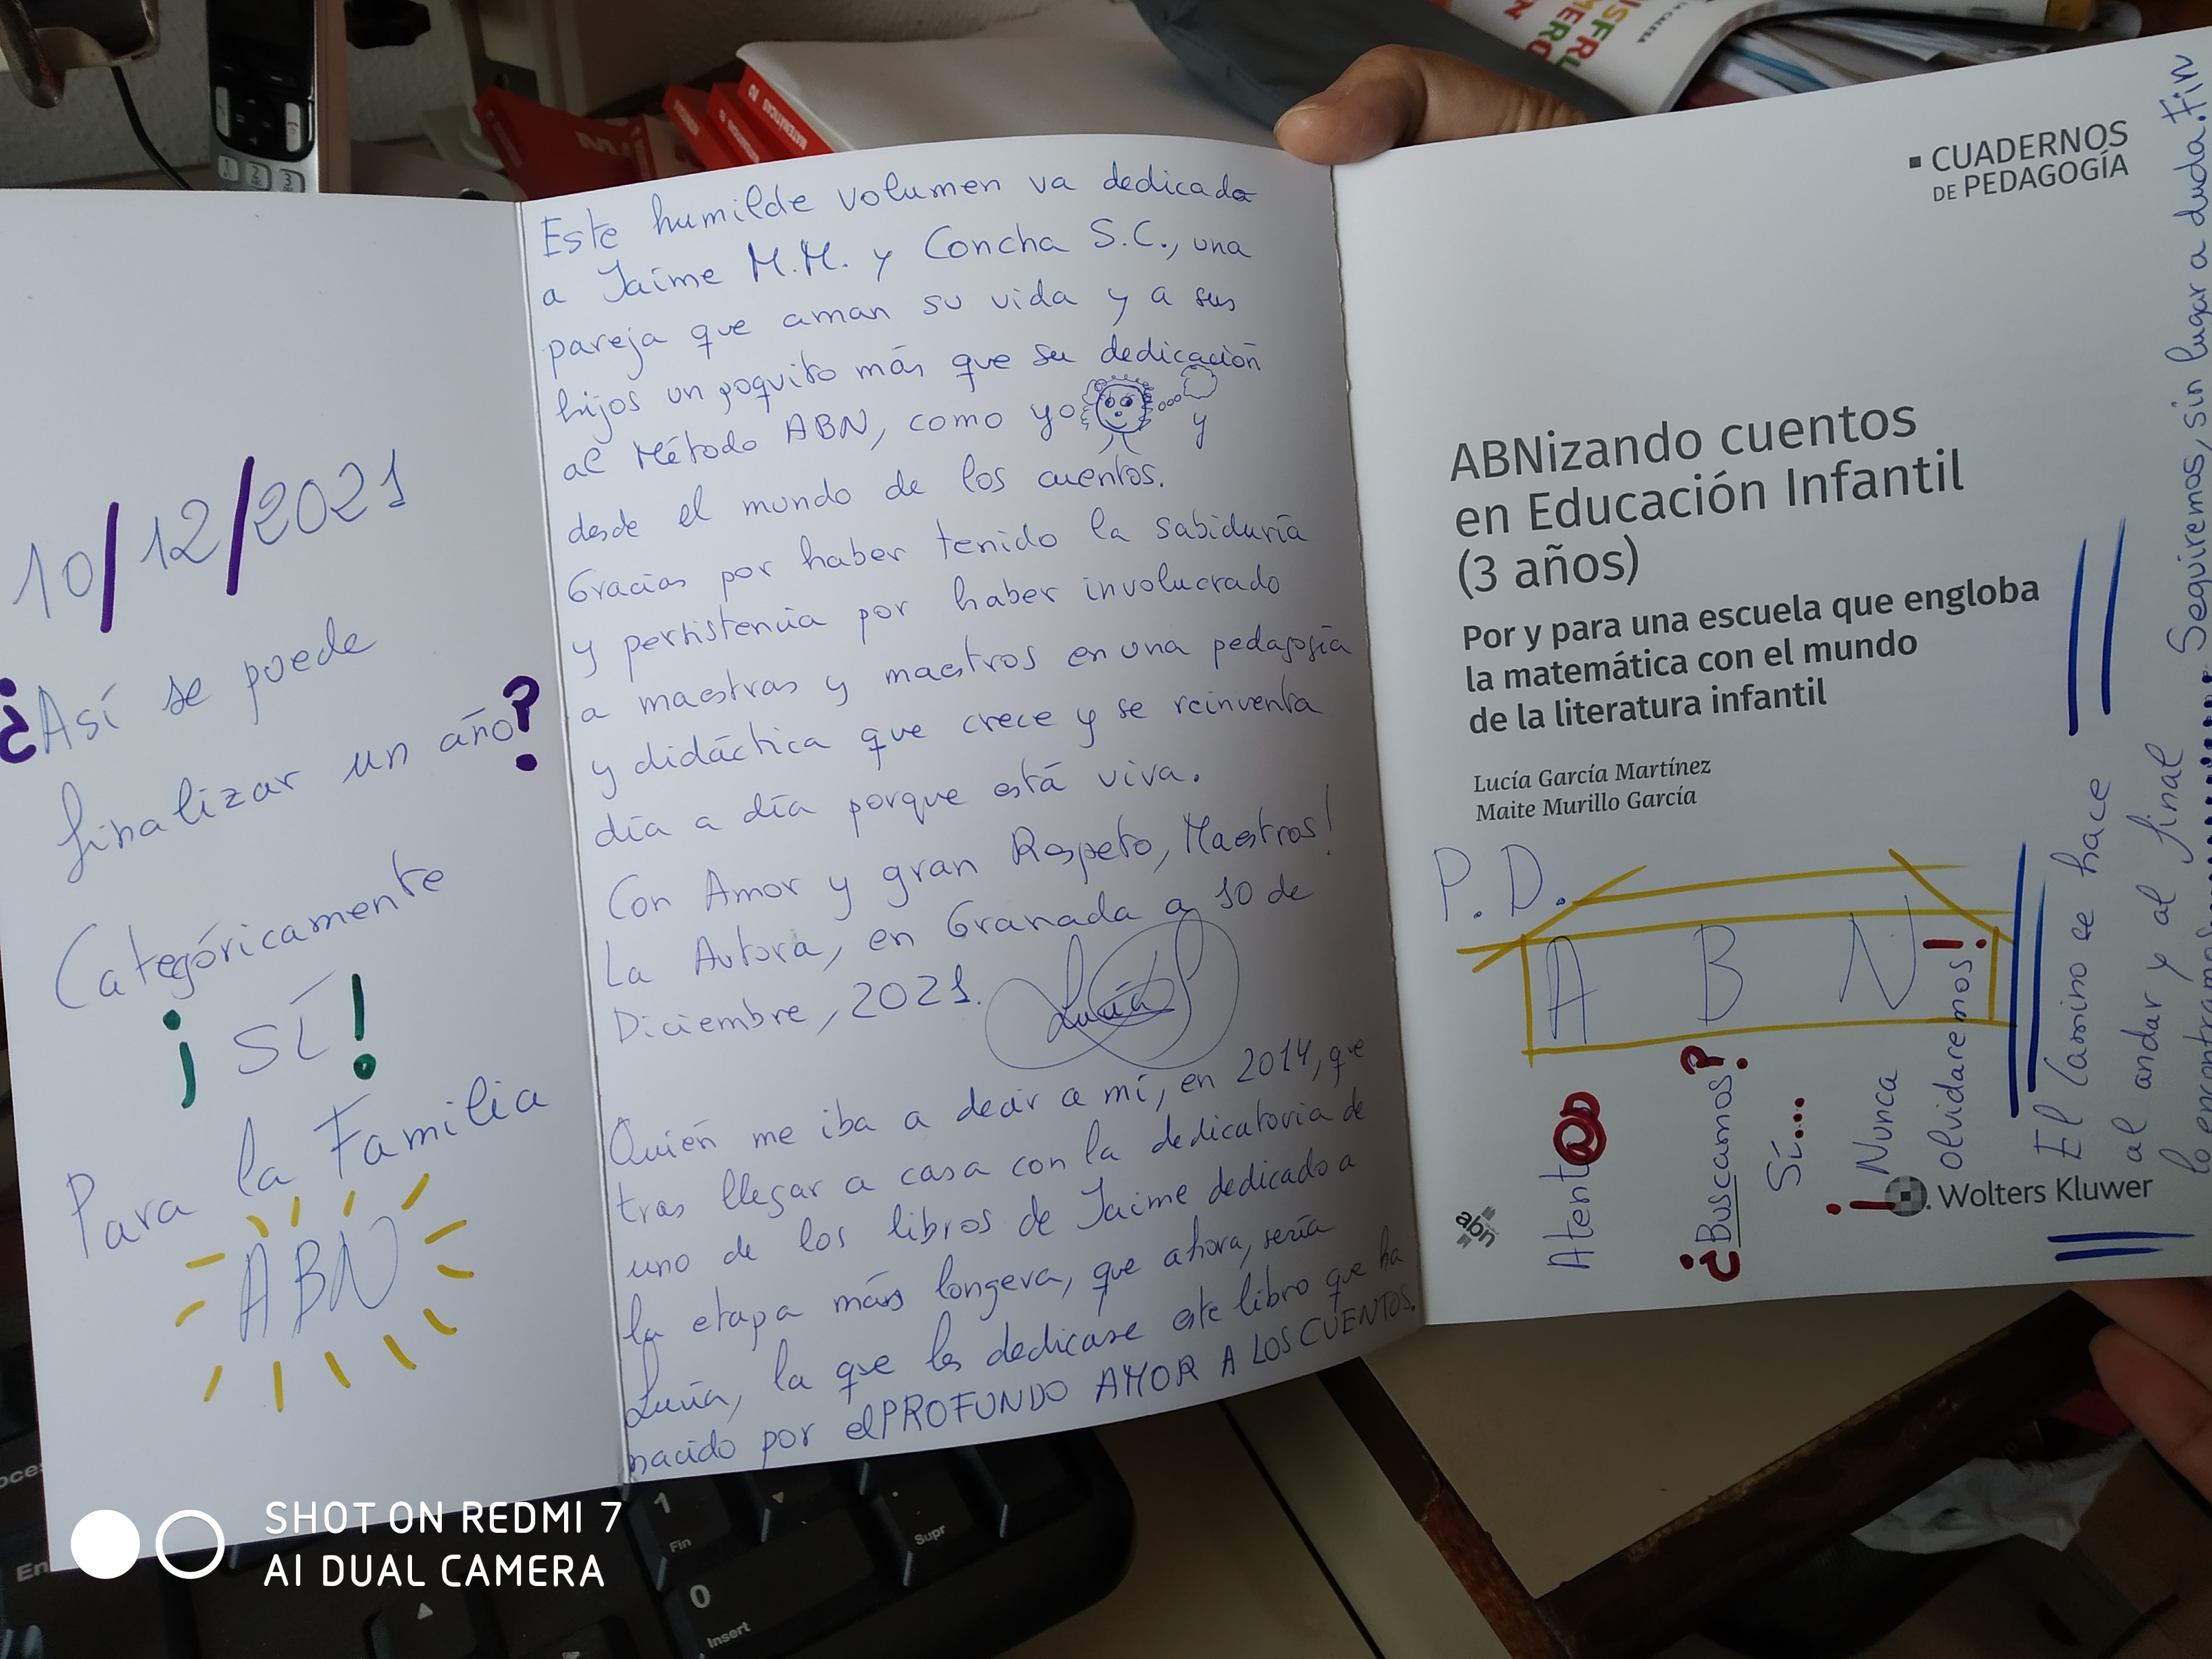 10/12/2021
¿Así se puede
finalizar un año?
Categóricamente
¡SÍ!
Para la Familia
ABN
Este humilde volumen va dedicado
a Jaime M.M. y Concha S.C., una
pareja que aman su vida y a sus
hijos un poquito más que su dedicación
al Método ABN, como yo y
desde el mundo de los cuentos.
Gracias por haber tenido la sabiduría
y persistencia por haber involucrado
a maestras y maestros en una pedagogía
y didáctica que crece y se reinventa
día a día porque está viva.
Con Amor y gran Respeto, Maestros!
La Autora, en Granada a 10 de
Diciembre, 2021.
Lucía
Quién me iba a decir a mí, en 2014, que
tras llegar a casa con la dedicatoria de
uno de los libros de Jaime dedicado a
la etapa más longeva, que ahora, sería
Lucía, la que les dedicase este libro que ha
nacido por el PROFUNDO AMOR A LOS CUENTOS.
CUADERNOS
DE PEDAGOGÍA
ABNizando cuentos
en Educación Infantil
(3 años)
Por y para una escuela que engloba
la matemática con el mundo
de la literatura infantil
Lucía García Martínez
Maite Murillo García
P.D.
A B N
Atent@s
¿Buscamos?
Sí...
¡Nunca
olvidaremos!
El Camino se hace
al andar y al final
lo encontramos
Seguiremos, sin lugar a duda. Fin
abn
Wolters Kluwer
1
Fin
Supr
0
Insert
SHOT ON REDMI 7
AI DUAL CAMERA